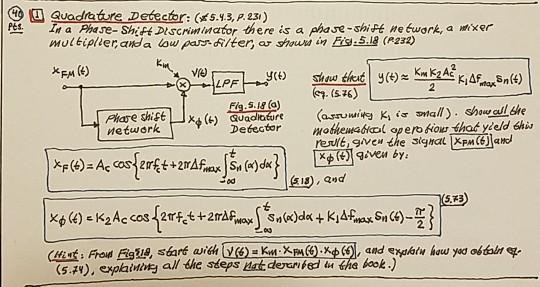 40 pts. 1 Quadrature Detector: (§ 5.4.3, P. 231)
In a Phase-Shift Discriminator there is a phase-shift network, a mixer
multiplier, and a low pass-filter, as shown in Fig. 5.18 (P 232)
X_FM(t) K_m V(t) LPF y(t)
Phase shift network X_φ(t)
Fig. 5.18 (a)
Quadrature
Detector
Show that
(eq. (5.76)
y(t) ≈ K_m K_2 A_c^2 / 2 K_1 Δf_max S_n(t)
(assuming K_1 is small). show all the
mathematical operations that yield this
result, given the signal X_FM(t) and
X_φ(t) given by:
X_F(t) = A_c cos{2πf_c t + 2πΔf_max ∫_{-∞}^{t} S_n(α)dα} (5.18), and
X_φ(t) = K_2 A_c cos{2πf_c t + 2πΔf_max ∫_{-∞}^{t} S_n(α)dα + K_1 Δf_max S_n(t) - π/2} (5.73)
(Hint: From Fig 5.18, start with V(t) = K_m · X_FM(t) · X_φ(t), and explain how you obtain eq.
(5.74), explaining all the steps not described in the book.)